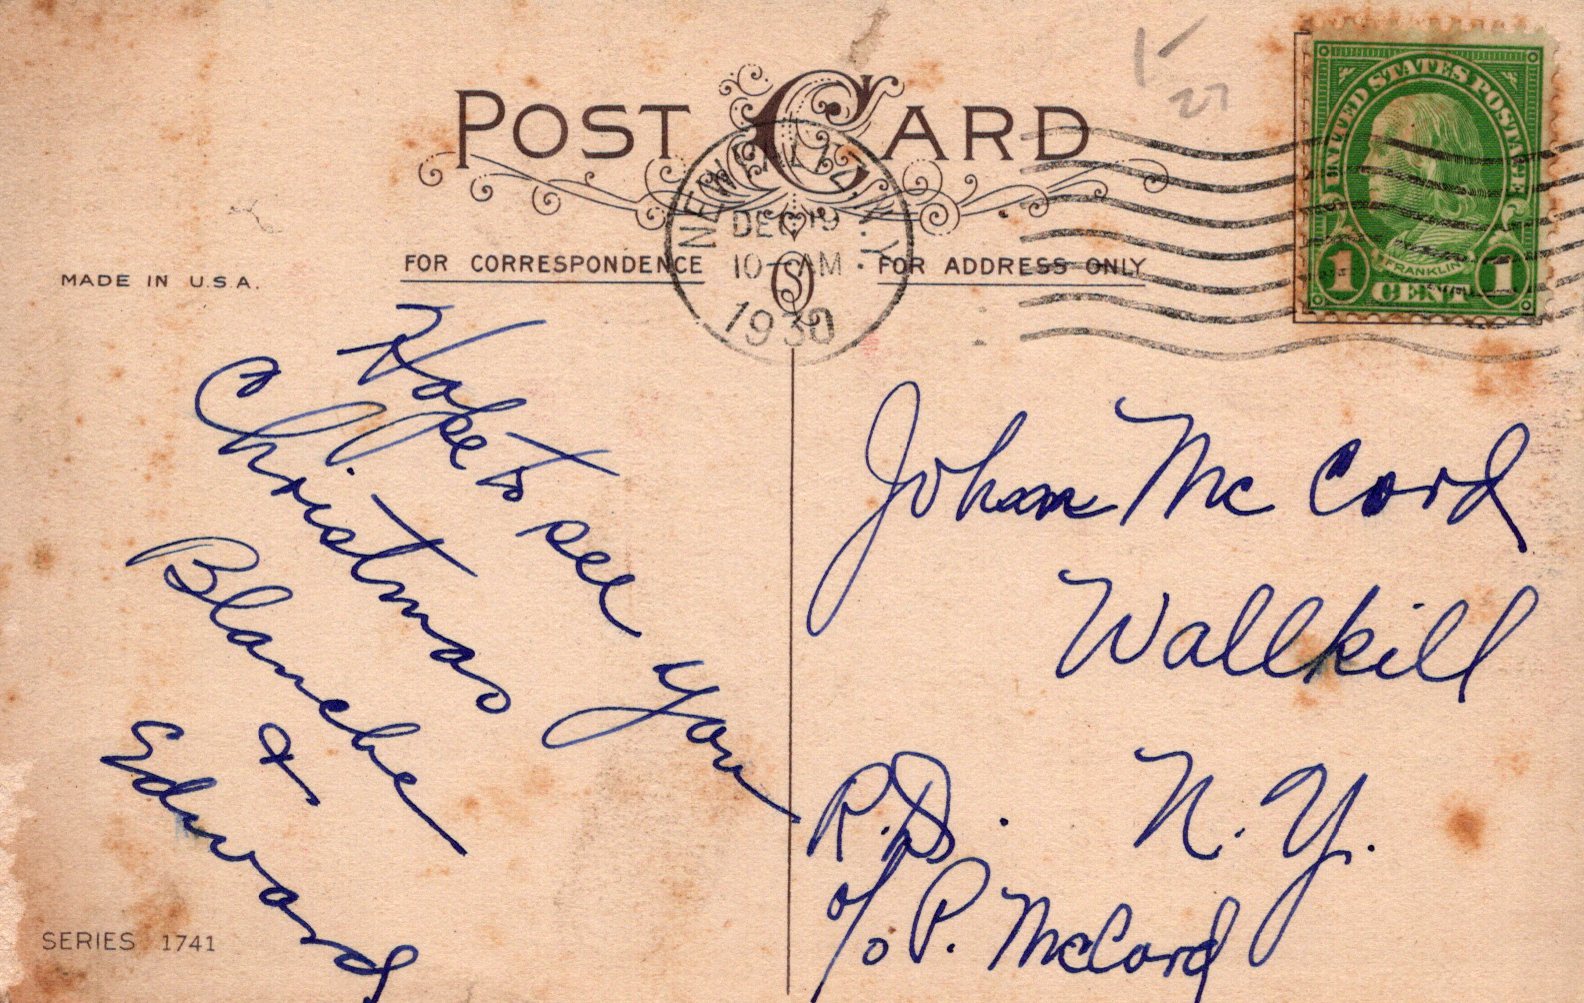 POST CARD
1-
27
UNITED STATES POSTAGE
FRANKLIN
1 CENT 1
NEW PALTZ, N.Y.
DEC 19
10-AM
1930
FOR CORRESPONDENCE
FOR ADDRESS ONLY
MADE IN U.S.A.
Hope to see you
Christmas
Blanche
&
Edward
SERIES 1741
John McCord
Wallkill
N.Y.
R.D.
c/o P. McCord